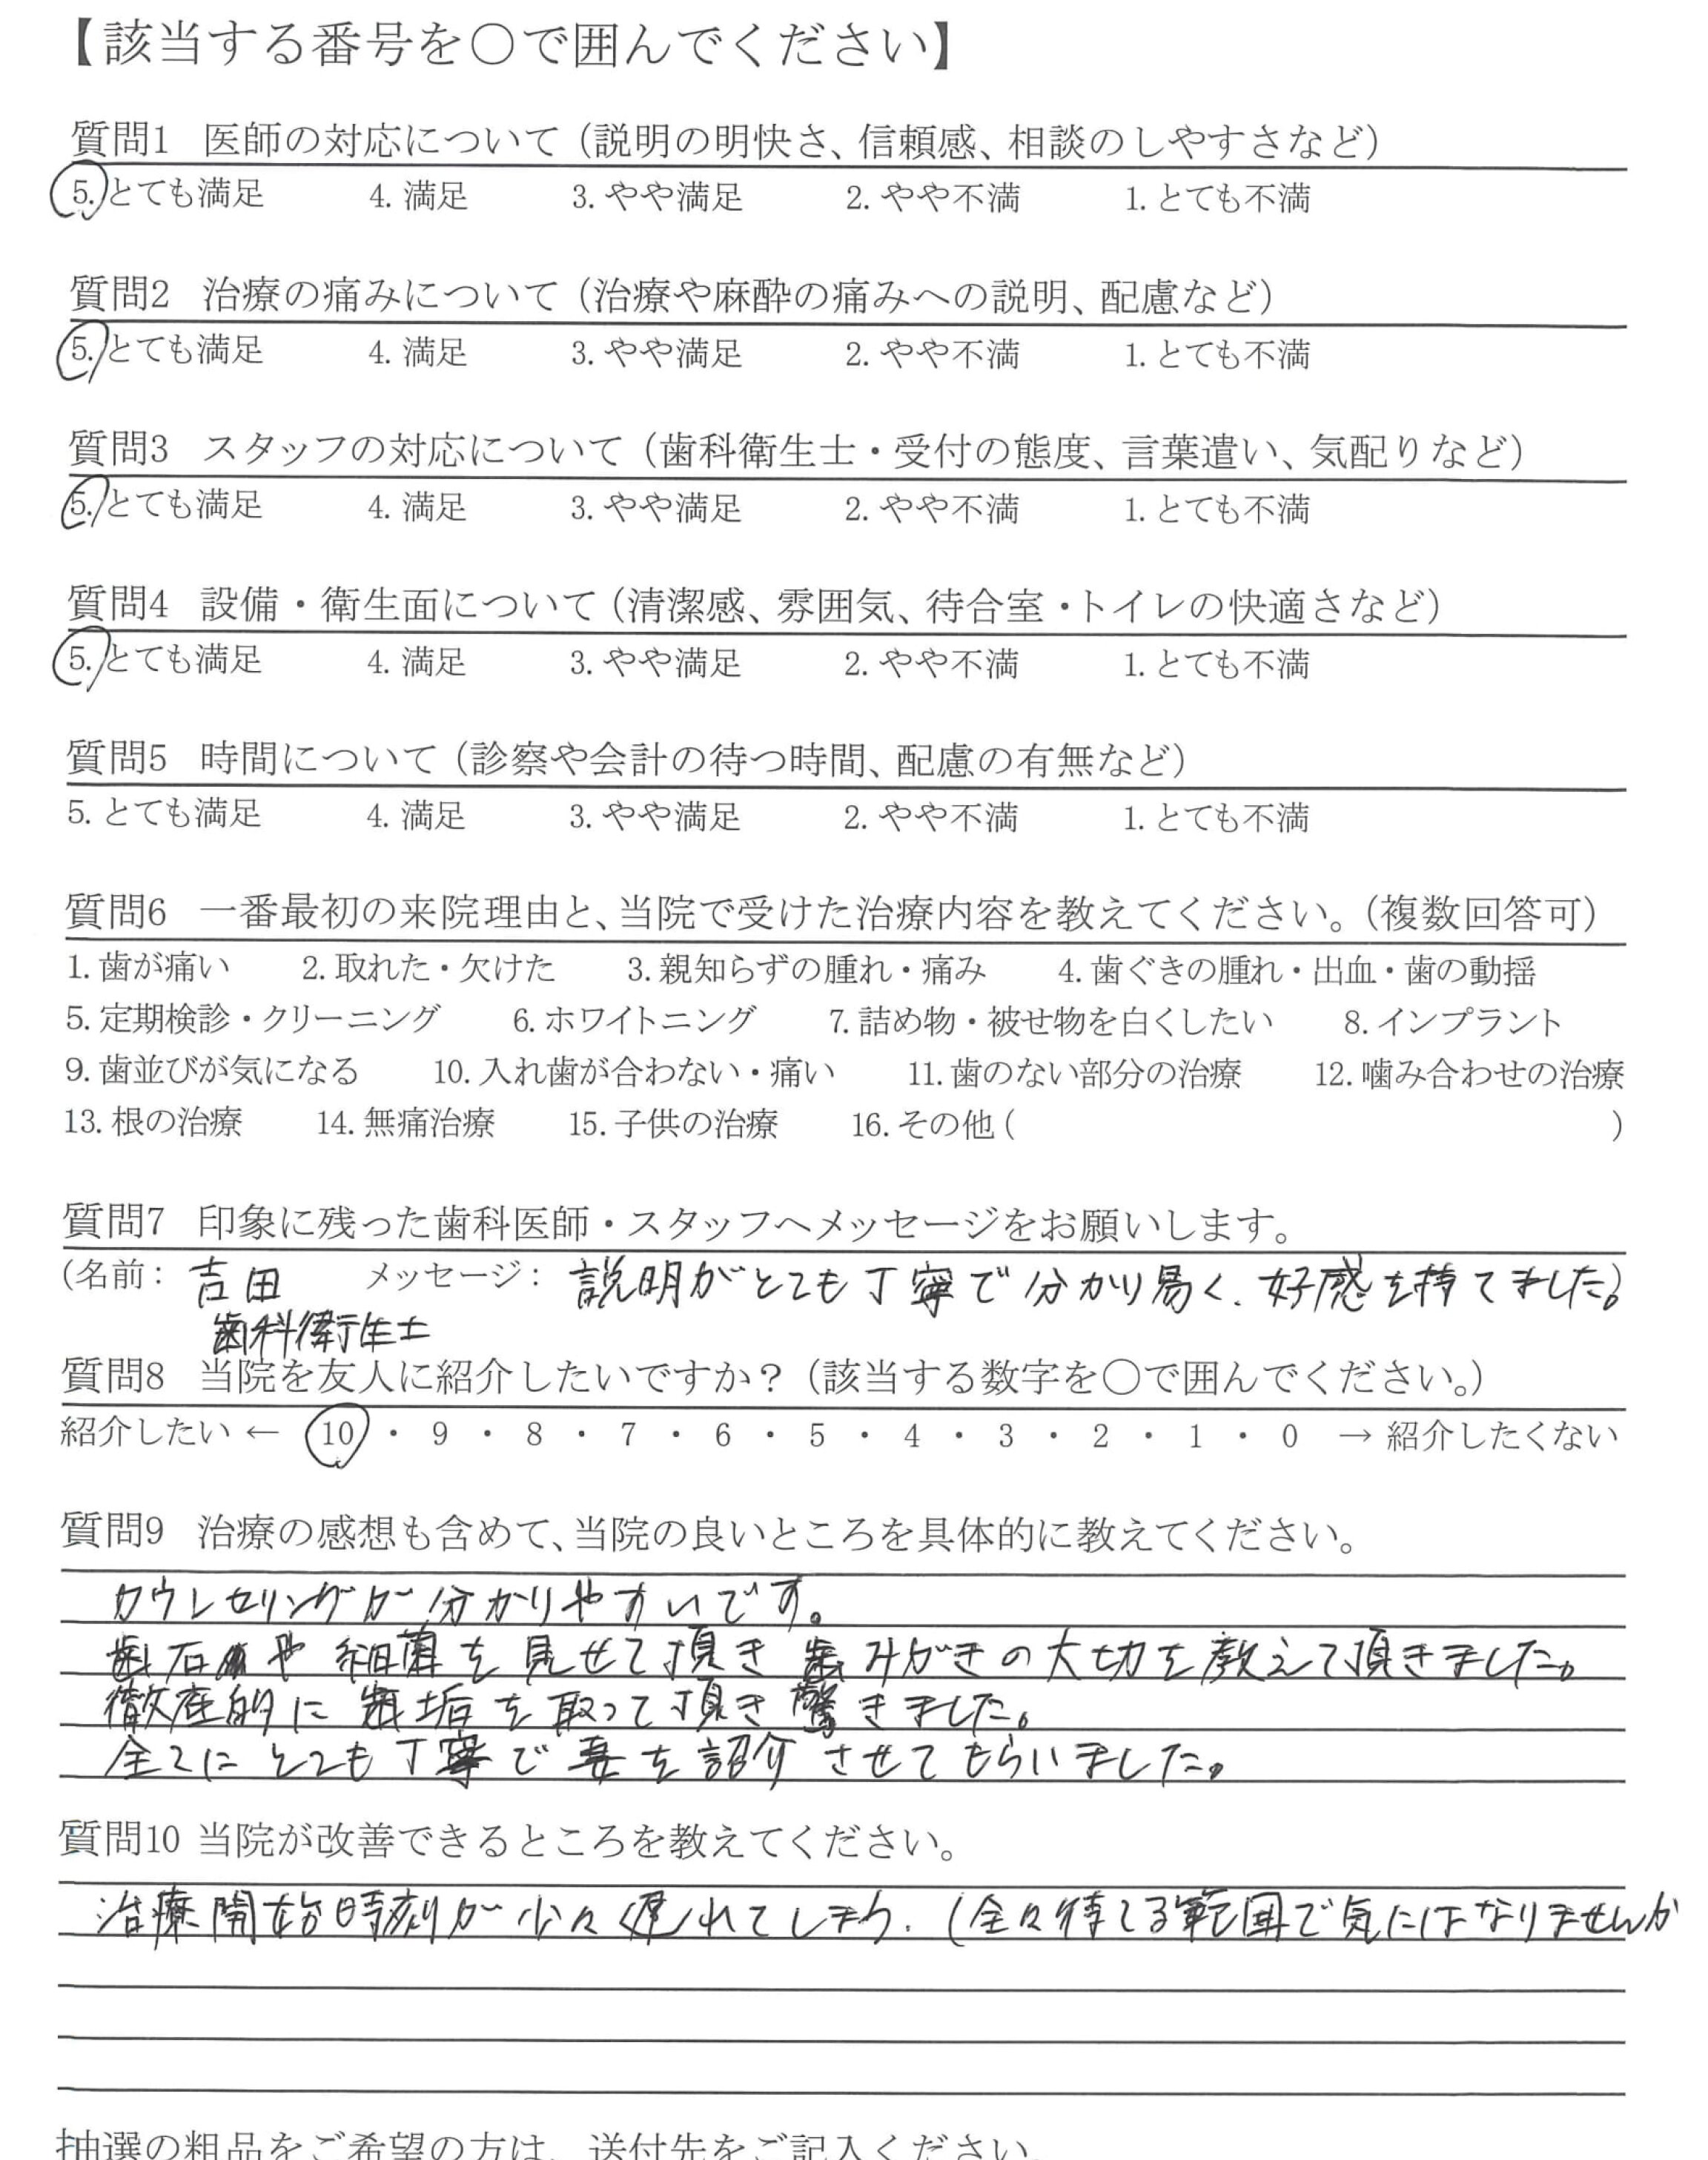 【該当する番号を〇で囲んでください】
質問1 医師の対応について（説明の明快さ、信頼感、相談のしやすさなど）
5. とても満足 4. 満足 3. やや満足 2. やや不満 1. とても不満
質問2 治療の痛みについて（治療や麻酔の痛みへの説明、配慮など）
5. とても満足 4. 満足 3. やや満足 2. やや不満 1. とても不満
質問3 スタッフの対応について（歯科衛生士・受付の態度、言葉遣い、気配りなど）
5. とても満足 4. 満足 3. やや満足 2. やや不満 1. とても不満
質問4 設備・衛生面について（清潔感、雰囲気、待合室・トイレの快適さなど）
5. とても満足 4. 満足 3. やや満足 2. やや不満 1. とても不満
質問5 時間について（診察や会計の待つ時間、配慮の有無など）
5. とても満足 4. 満足 3. やや満足 2. やや不満 1. とても不満
質問6 一番最初の来院理由と、当院で受けた治療内容を教えてください。（複数回答可）
1. 歯が痛い 2. 取れた・欠けた 3. 親知らずの腫れ・痛み 4. 歯ぐきの腫れ・出血・歯の動揺
5. 定期検診・クリーニング 6. ホワイトニング 7. 詰め物・被せ物を白くしたい 8. インプラント
9. 歯並びが気になる 10. 入れ歯が合わない・痛い 11. 歯のない部分の治療 12. 噛み合わせの治療
13. 根の治療 14. 無痛治療 15. 子供の治療 16. その他 ( )
質問7 印象に残った歯科医師・スタッフへメッセージをお願いします。
（名前： 吉田 メッセージ： 説明がとても丁寧で分かり易く、好感を持てました。）
歯科衛生士
質問8 当院を友人に紹介したいですか？（該当する数字を〇で囲んでください。）
紹介したい ← 10 ・ 9 ・ 8 ・ 7 ・ 6 ・ 5 ・ 4 ・ 3 ・ 2 ・ 1 ・ 0 → 紹介したくない
質問9 治療の感想も含めて、当院の良いところを具体的に教えてください。
カウンセリングが分かりやすいです。
歯石や細菌を見せて頂き歯みがきの大切を教えて頂きました。
徹底的に歯垢を取って頂き驚きました。
全てにとても丁寧で妻を紹介させてもらいました。
質問10 当院が改善できるところを教えてください。
治療開始時刻が少々遅れてしまう。（全々待てる範囲で気にはなりませんが
抽選の粗品をご希望の方は、送付先をご記入ください。